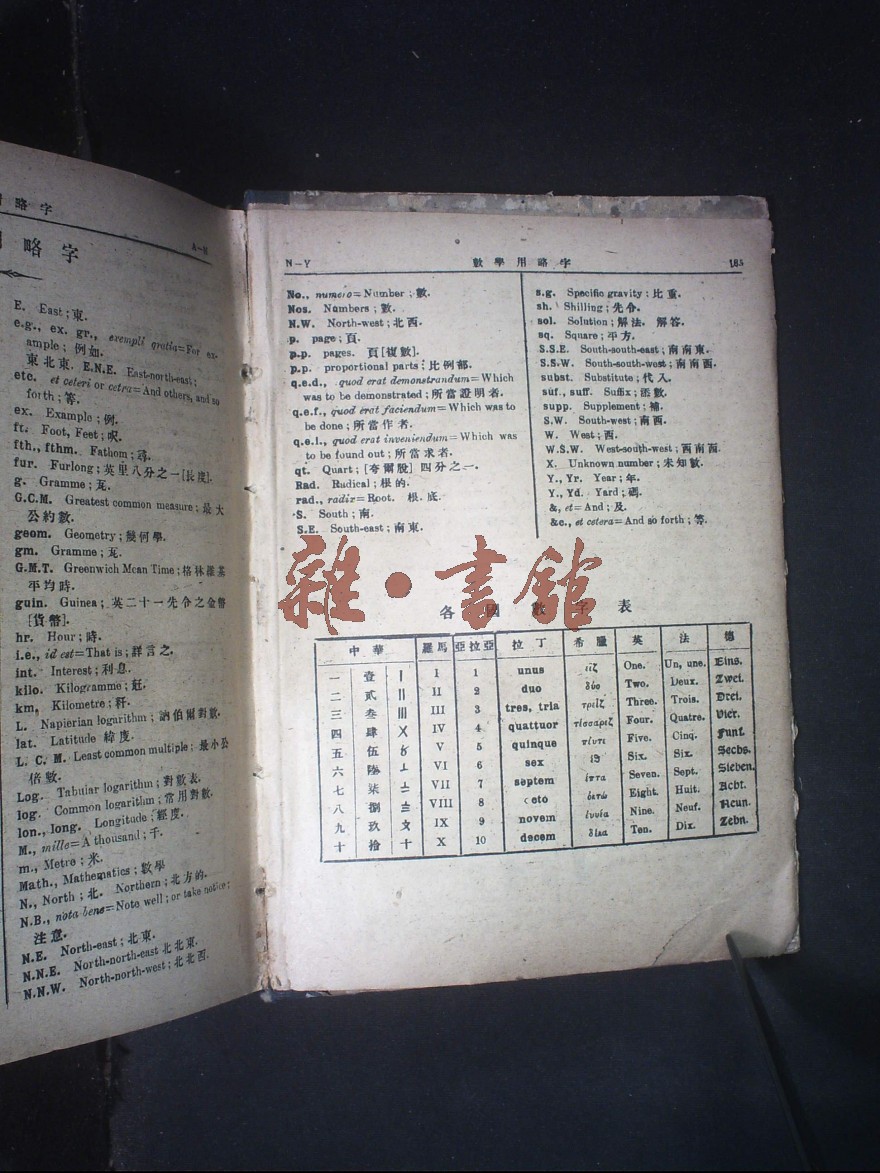 略字
A-N
略字
E. East; 東.
e.g., ex. gr., exempli gratia=For ex-
ample; 例如.
東北東. E.N.E. East-north-east;
etc. et ceteri or cetra=And others, and so
forth; 等.
ex. Example; 例.
ft. Foot, Feet; 呎.
fth., fthm. Fathom; 尋.
fur. Furlong; 英里八分之一[長度].
g. Gramme; 瓦.
G.C.M. Greatest common measure; 最大
公約數.
geom. Geometry; 幾何學.
gm. Gramme; 瓦.
G.M.T. Greenwich Mean Time; 格林維基
平均時.
guin. Guinea; 英二十一先令之金幣
[貨幣].
hr. Hour; 時.
i.e., id est=That is; 詳言之.
int. Interest; 利息.
kilo. Kilogramme; 瓩.
km. Kilometre; 粁.
L. Napierian logarithm; 訥伯爾對數.
lat. Latitude 緯度.
L. C. M. Least common multiple; 最小公
倍數.
Log. Tabular logarithm; 對數表.
log. Common logarithm; 常用對數.
lon., long. Longitude; 經度.
M., mille=A thousand; 千.
m., Metre; 米.
Math., Mathematics; 數學
N., North; 北. Northern; 北方的.
N.B., nota bene=Note well; or take notice;
注意.
N.E. North-east; 北東.
N.N.E. North-north-east 北北東.
N.N.W. North-north-west; 北北西.
N-Y 數學用略字 165
No., numero=Number; 數.
Nos. Numbers; 數.
N.W. North-west; 北西.
p. page; 頁.
p.p. pages. 頁[複數].
p.p. proportional parts; 比例部.
q.e.d., quod erat demonstrandum=Which
was to be demonstrated; 所當證明者.
q.e.f., quod erat faciendum=Which was to
be done; 所當作者.
q.e.l., quod erat inveniendum=Which was
to be found out; 所當求者.
qt. Quart; [夸爾脫] 四分之一.
Rad. Radical; 根的.
rad., radix=Root. 根. 底.
S. South; 南.
S.E. South-east; 南東.
s.g. Specific gravity; 比重.
sh. Shilling; 先令.
sol. Solution; 解法. 解答.
sq. Square; 平方.
S.S.E. South-south-east; 南南東.
S.S.W. South-south-west; 南南西.
subst. Substitute; 代入.
suf., suff. Suffix; 添數.
supp. Supplement; 補.
S.W. South-west; 南西.
W. West; 西.
W.S.W. West-south-west; 西南西.
X. Unknown number; 未知數.
Y., Yr. Year; 年.
Y., Yd. Yard; 碼.
&, et=And; 及.
&c., et cetera=And so forth; 等.
雜·書館
各國數字表
中華 羅馬 亞拉亞 拉丁 希臘 英 法 德
一 壹 〡 I 1 unus εἷς One. Un, une. Eins.
二 貳 〢 II 2 duo δύο Two. Deux. Zwei.
三 叁 〣 III 3 tres, tria τρεῖς Three. Trois. Drei.
四 肆 〤 IV 4 quattuor τέσσαρες Four. Quatre. Vier.
五 伍 〥 V 5 quinque πέντε Five. Cinq. Funf.
六 陸 〦 VI 6 sex ἕξ Six. Six. Sechs.
七 柒 〧 VII 7 septem ἑπτα Seven. Sept. Sieben.
八 捌 〨 VIII 8 octo ὀκτώ Eight. Huit. Acht.
九 玖 〩 IX 9 novem ἐννέα Nine. Neuf. Neun.
十 拾 十 X 10 decem δέκα Ten. Dix. Zehn.